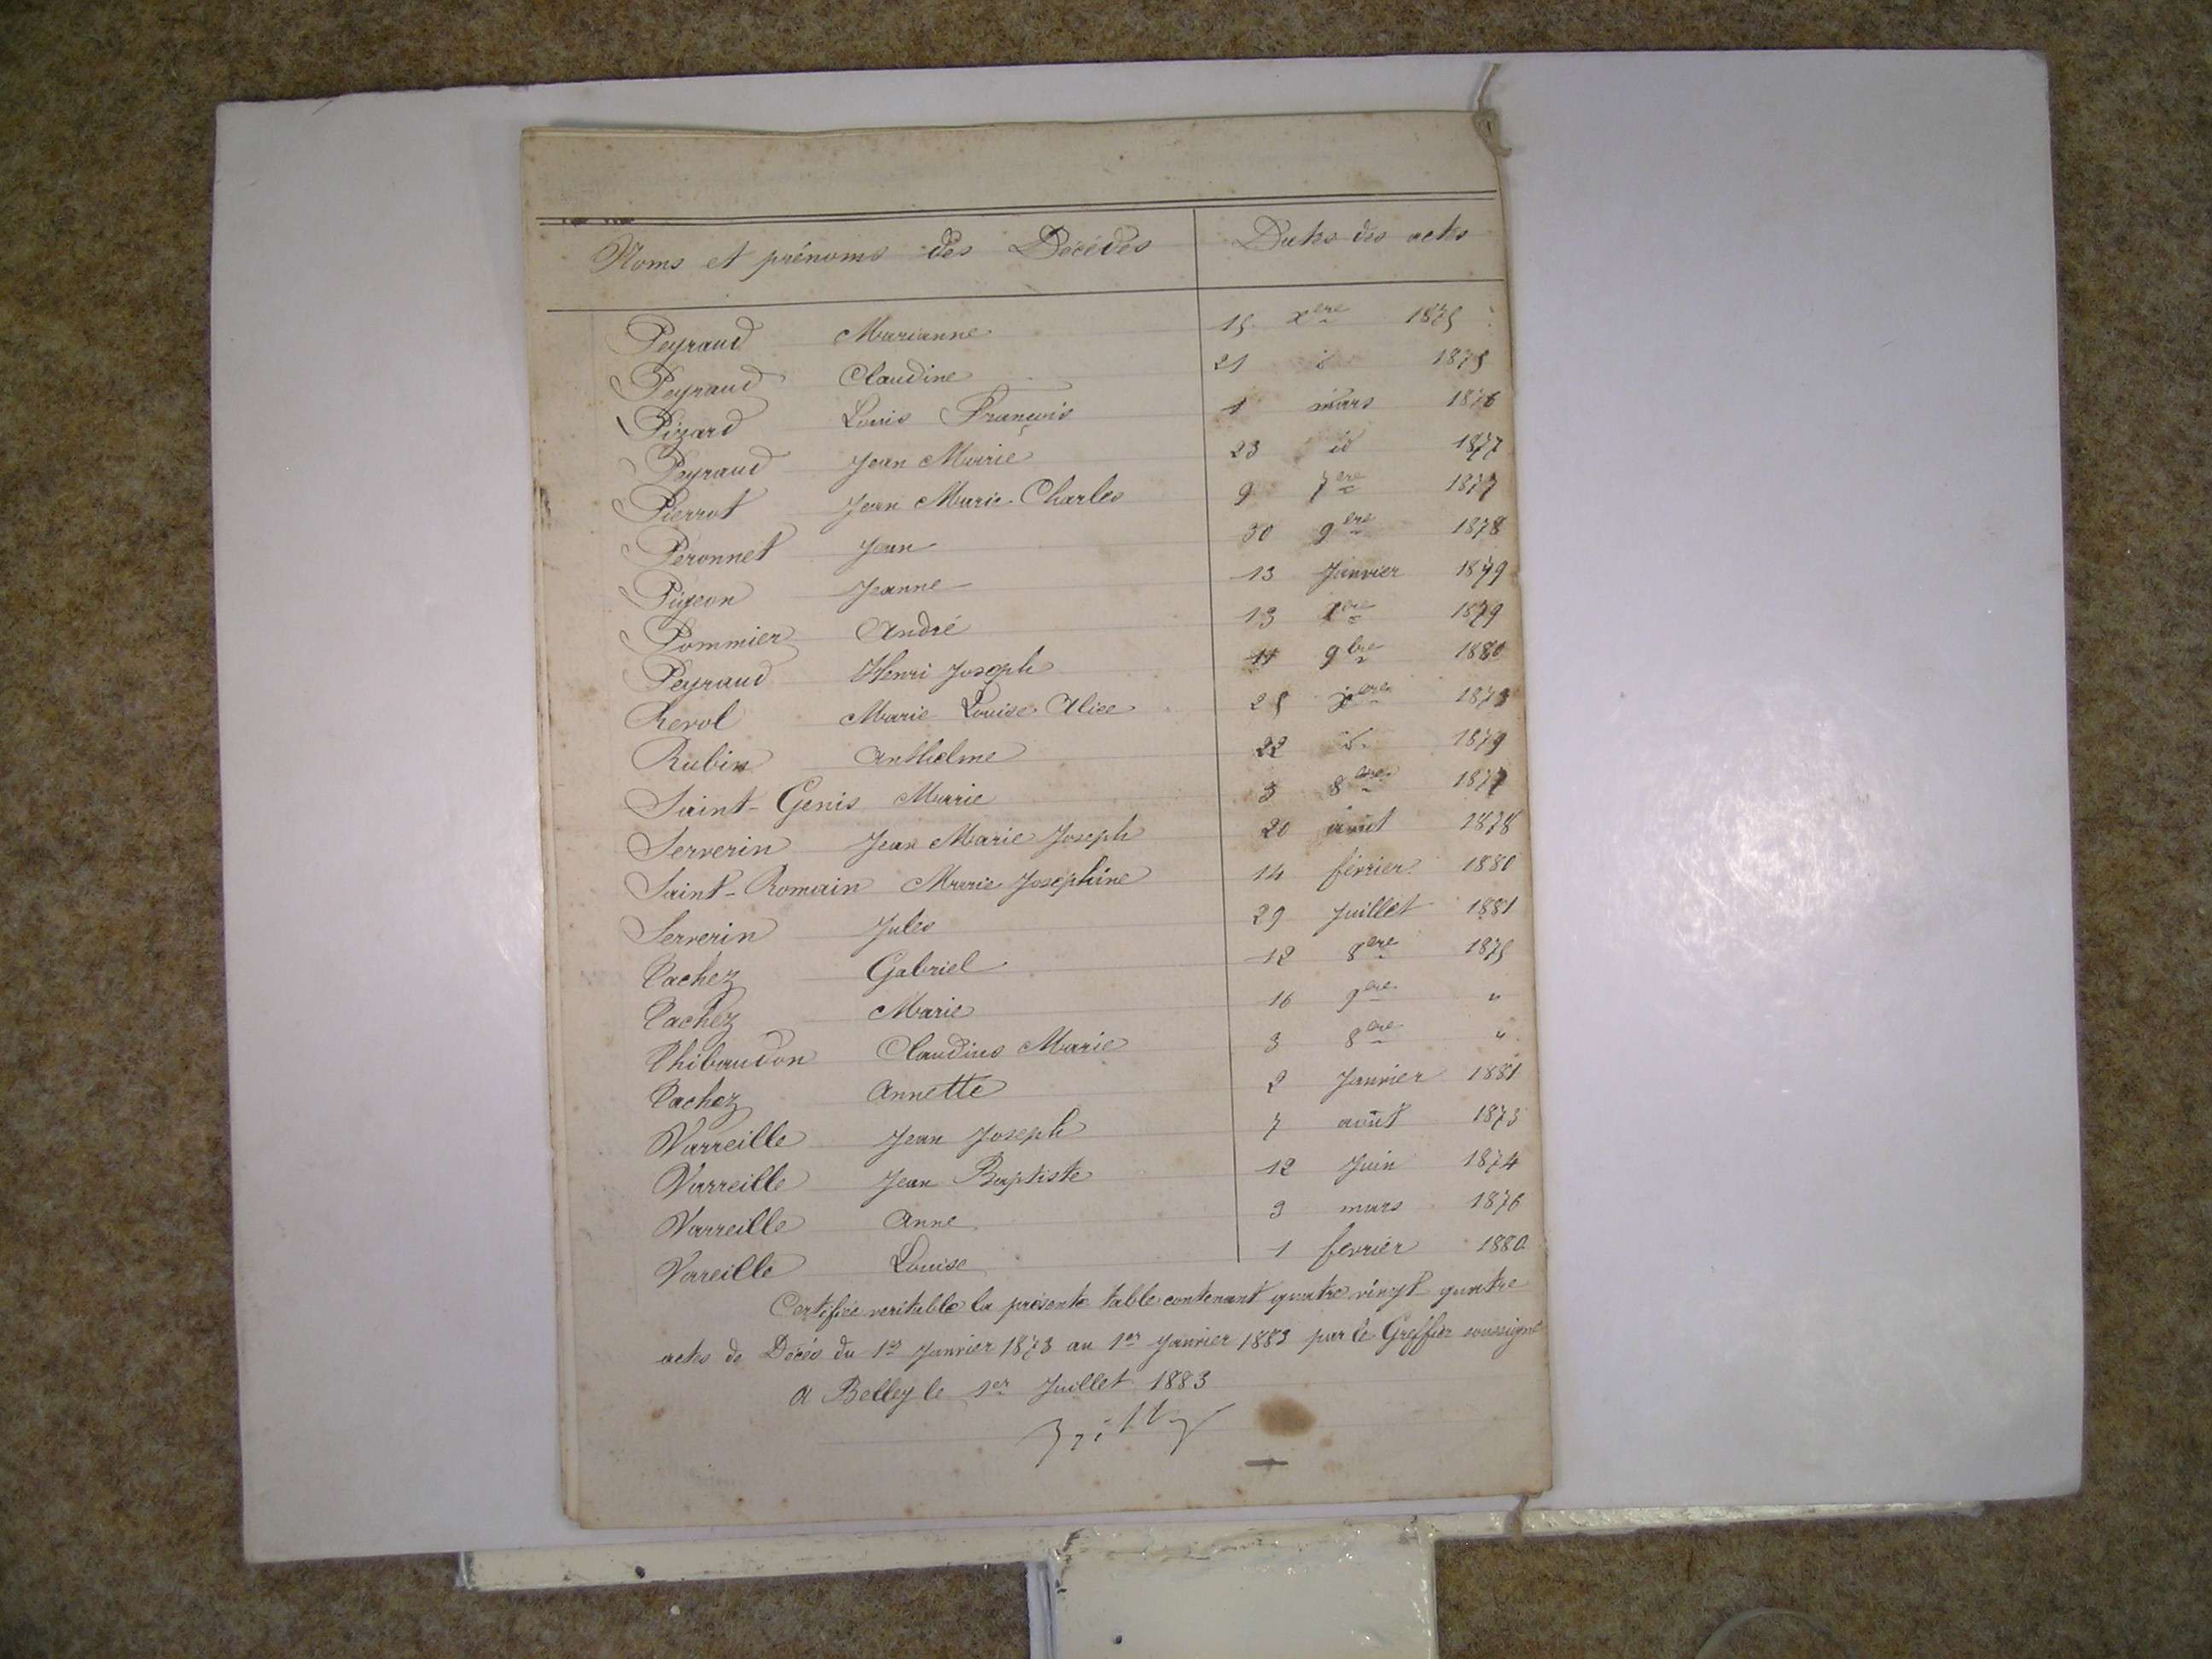 Noms et prénoms des Décédés Dates des actes
Peyraud Marianne 15 xere 1875
Peyraud Claudine 21 id 1875
Pizard Louis François 1 mars 1876
Peyraud Jean Marie 23 id 1877
Pierrot Jean Marie Charles 9 7ere 1877
Peronnet Jean 30 9ere 1878
Pigeon Jeanne 13 Janvier 1879
Pommier André 13 xere 1879
Peyraud Henri Joseph 11 9bre 1880
Revol Marie Louise Alice 25 xere 1873
Rubin Anthelme 22 id. 1879
Saint-Genis Marie 3 8ere 1877
Serverin Jean Marie Joseph 20 août 1878
Saint-Romain Marie Joséphine 14 février 1880
Serverin Jules 29 Juillet 1881
Tachez Gabriel 12 8ere 1875
Tachez Marie 16 9ere "
Thibaudon Claudius Marie 3 8ere "
Tachez Annette 2 Janvier 1881
Varreille Jean Joseph 7 août 1873
Varreille Jean Baptiste 12 Juin 1874
Varreille Anne 3 mars 1876
Vareille Louise 1 fevrier 1880
Certifiée veritable la présente table contenant quatre vingt quatre
actes de Décés du 1er Janvier 1873 au 1er Janvier 1883 par le Greffier soussigné
A Belley le 1er Juillet 1883